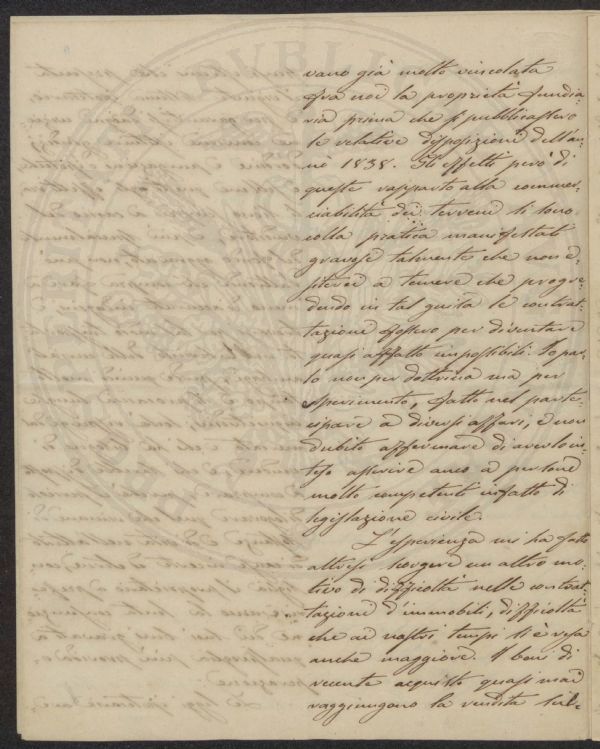 vano già molto vincolata
fra noi la proprietà fondia-
ria prima che si pubblicassero
le relative disposizioni dell'an-
no 1838. Gli effetti però di
queste rapporto alla commer-
ciabilità dei terreni si sono
colla pratica manifestati
gravosi talmente che non è
a temere che progre-
dendo in tal guisa le contrat-
tazioni fossero per diventare
quasi affatto impossibili. Io par-
lo non per dottrina ma per
sperimento, fatto nel parte-
cipare a diversi affari, e non
dubito affermare di averlo in-
teso asserire anco a persone
molto competenti in fatto di
legislazione civile.
L'esperienza mi ha fatto
altresì scorgere un altro mo-
tivo di difficoltà nelle contrat-
tazioni d'immobili, difficoltà
che ai nostri tempi si è resa
anche maggiore. I beni di
recente acquisto quasi mai
raggiungono la vendita sul-